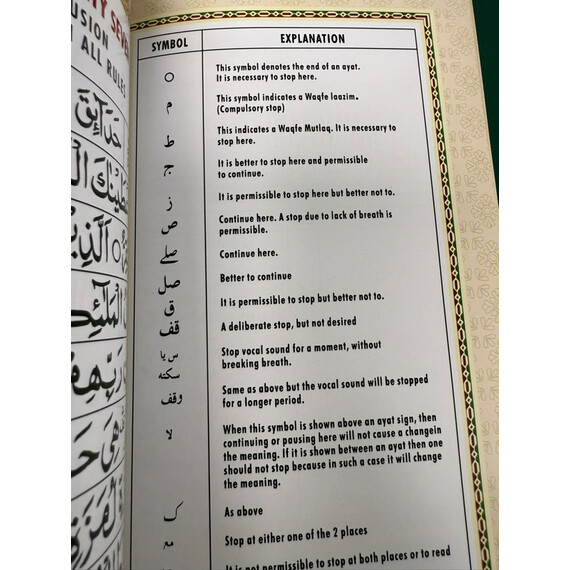 TY SEVE
LUSION
ALL RULES
حَدَآئِقَ
ٱلَّذِيْ
الْمَلٰٓئِكَ
رَبِّهِمْ
هِيَ حَ
SYMBOL EXPLANATION
○ This symbol denotes the end of an ayat.
It is necessary to stop here.
م This symbol indicates a Waqfe laazim.
(Compulsory stop)
ط This indicates a Waqfe Mutlaq. It is necessary to
stop here.
ج It is better to stop here and permissible
to continue.
ز It is permissible to stop here but better not to.
ص Continue here. A stop due to lack of breath is
permissible.
صلے Continue here.
صل Better to continue
ق It is permissible to stop but better not to.
قف A deliberate stop, but not desired
س یا Stop vocal sound for a moment, without
سکتہ breaking breath.
وقف Same as above but the vocal sound will be stopped
for a longer period.
لا When this symbol is shown above an ayat sign, then
continuing or pausing here will not cause a changein
the meaning. If it is shown between an ayat then one
should not stop because in such a case it will change
the meaning.
ک As above
مع Stop at either one of the 2 places
It is not permissible to stop at both places or to read